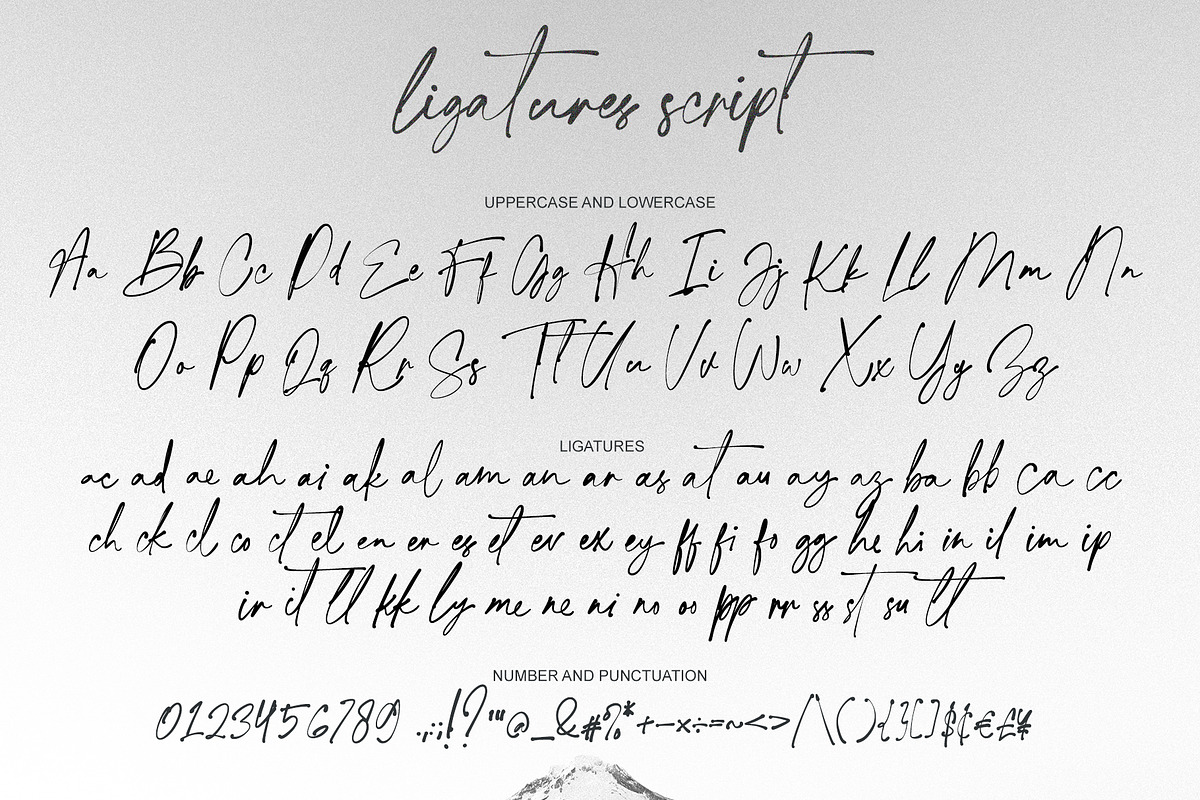 ligatures script
UPPERCASE AND LOWERCASE
Aa Bb Cc Dd Ee Ff Gg Hh Ii Jj Kk Ll Mm Nn
Oo Pp Qq Rr Ss Tt Uu Vv Ww Xx Yy Zz
LIGATURES
ac ad ae ah ai ak al am an ar as at au ay az ba bb ca cc
ch ck cl co ct el en er es et ev ex ey ff fi fo gg he hi in il im ip
ir it ll kk ly me ne ni no oo pp rr ss st su tt
NUMBER AND PUNCTUATION
0123456789 .,:;!?"'"@_&#%*+−×÷=~<>/\(){}[]$¢€£¥